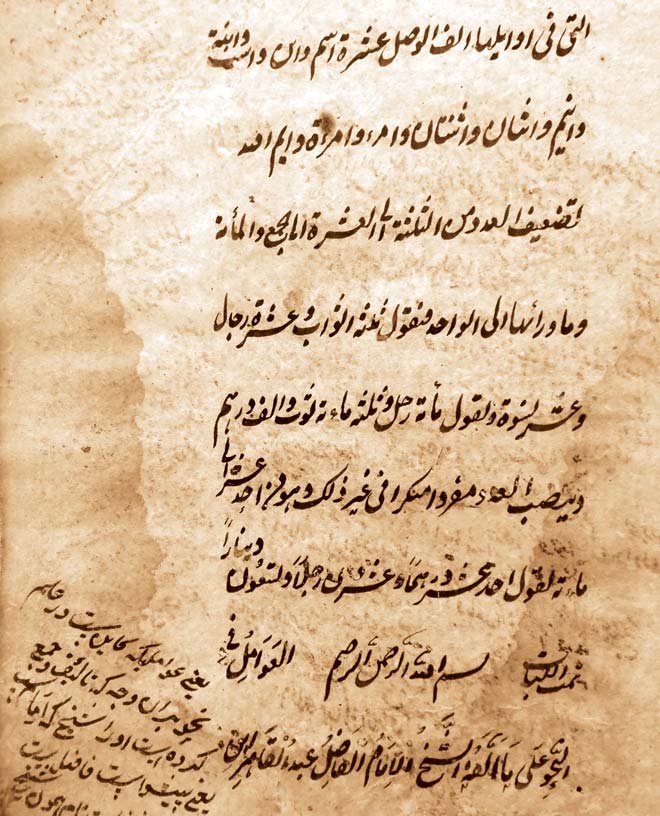 التي في اوايلها الف الوصل عشرة اسم وابن واست وابنة
وابنم واثنان واثنتان وامرء وامرءة وايم الله
تضعيف العدد من الثلثة الى العشرة الى الجمع والمأة
وما ورائها الى الواحد فتقول ثلثة اثواب وعشرة رجال
وعشر نسوة وتقول مأة رجل وثلثه ماءة ثوب والف درهم
وينصب العدد مفردا منكرا في غير ذلك وهو من احد عشر الى
ماءة تقول احد عشر درهما وعشرون رجلا وتسعون دينارا
تمت الكتاب بسم الله الرحمن الرحيم العوامل في
النحو على ما الفه الشيخ الامام الفاضل عبد القاهر بن
يعني عواملیکه کاین است در علم
نحو بران وجه که تالیف و جمع
کرده است او را شیخ که امام
یعنی پیشوا است فاضل است